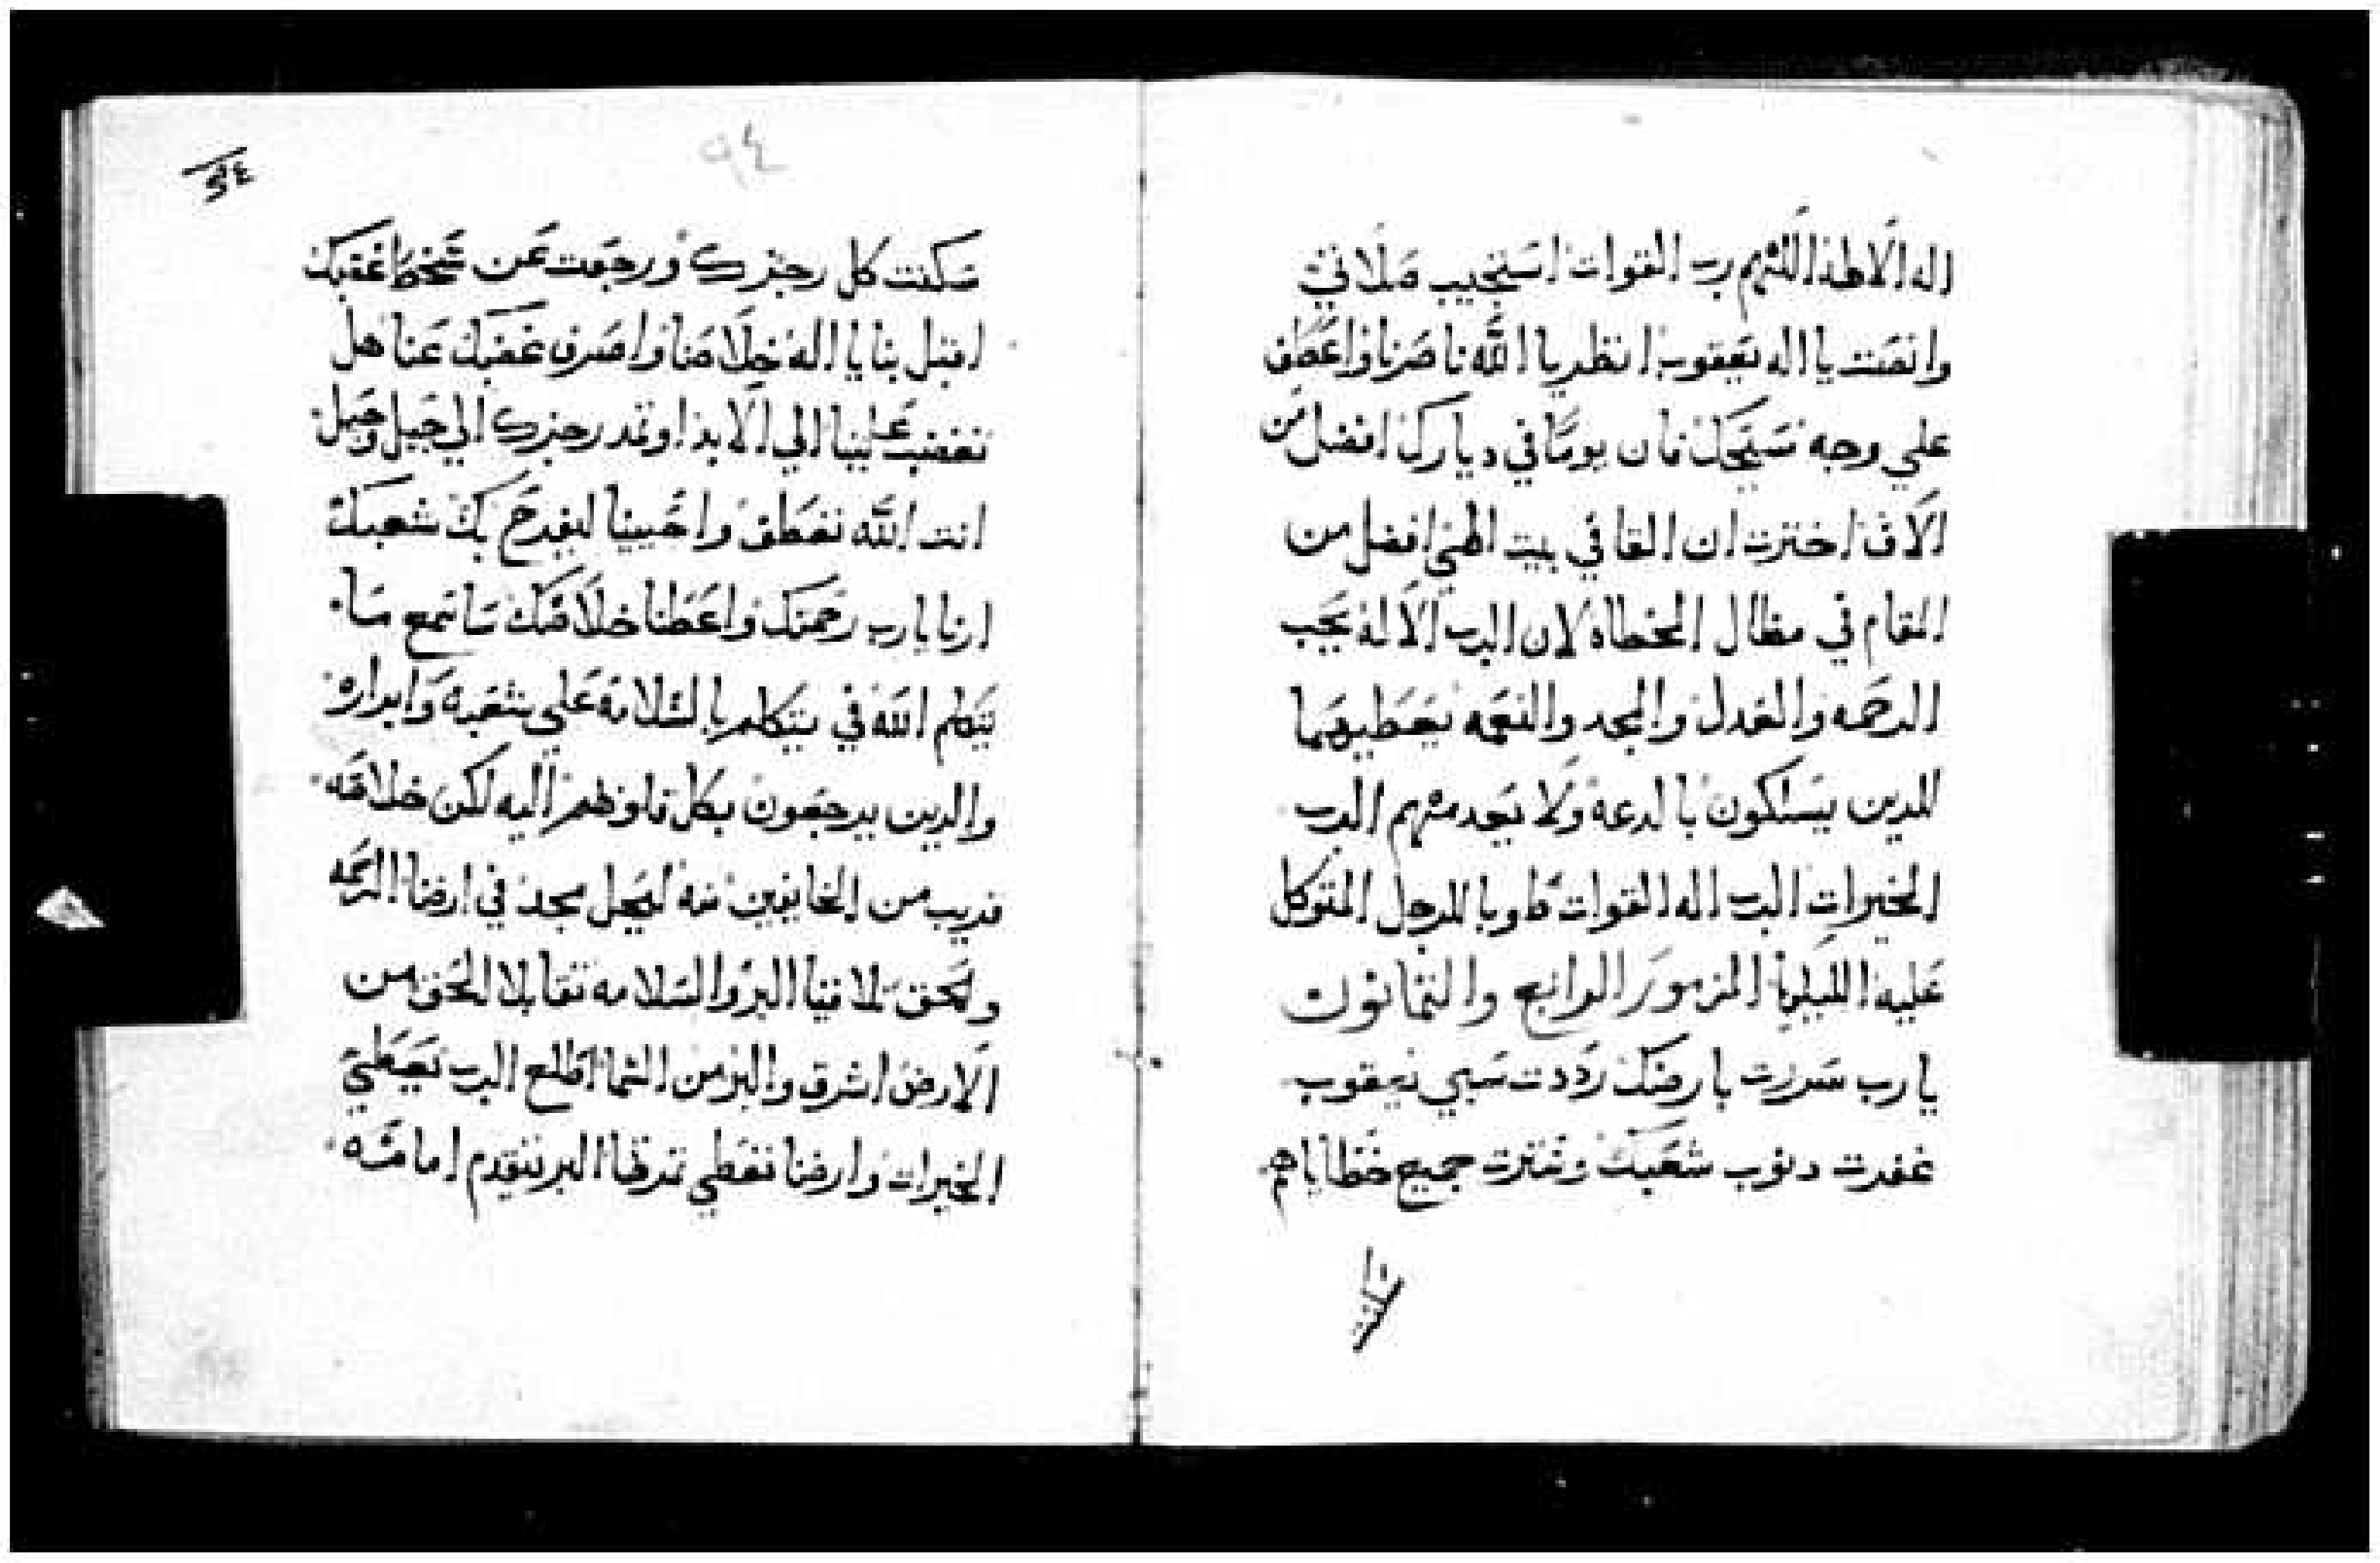 اله الالهة اللهم رب القوات استجيب صلاتي
وانصت يا اله يعقوب انظر يا الله ناصرنا واعطف
علي وجه مسيحك فان يوما في ديارك افضل من
الاف اخترت ان القا في بيت الهي افضل من
المقام في مظال الخطاه لان الرب الاله يحب
الرحمه والعدل والمجد والنعمه يعطيهما
للدين يسلكون بالدعه ولا يعدمهم الرب
الخيرات الرب اله القوات طوبا للرجل المتوكل
عليه الليلويا المزمور الرابع والثمانون
يارب سررت بارضك رددت سبي يعقوب
غفرت دنوب شعبك وسترت جميع خطاياهم
سكنت
٩٤
سكنت كل رجزك ورجعت عن سخط غضبك
اقبل بنا يا اله خلاصنا واصرف غضبك عنا هل
تغضب علينا الي الابد او تمد رجزك الي جيل وجيل
انت الله تعطف واحيينا ليفرح بك شعبك
ارنا يارب رحمتك واعطنا خلاصك سانمع ما
يتكلم الله في يتكلم بالسلامه علي شعبه وابراره
والدين يرجعون بكل قلوبهم اليه لكن خلاصه
قريب من الخايفين منه ليحل مجد في ارضنا الرحمه
والحق تلاقيا البر والسلامه تقابلا الحق من
الارض اشرق والبر من السما اطلع الرب يعطي
الخيرات وارضنا تعطي ثمرتها البر يتقدم امامه